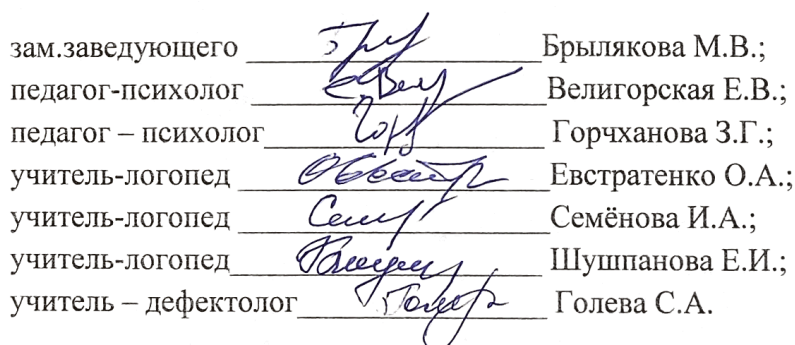 зам.заведующего ______________ Брылякова М.В.;
педагог-психолог ______________ Велигорская Е.В.;
педагог – психолог ______________ Горчханова З.Г.;
учитель-логопед ______________ Евстратенко О.А.;
учитель-логопед ______________ Семёнова И.А.;
учитель-логопед ______________ Шушпанова Е.И.;
учитель – дефектолог ______________ Голева С.А.